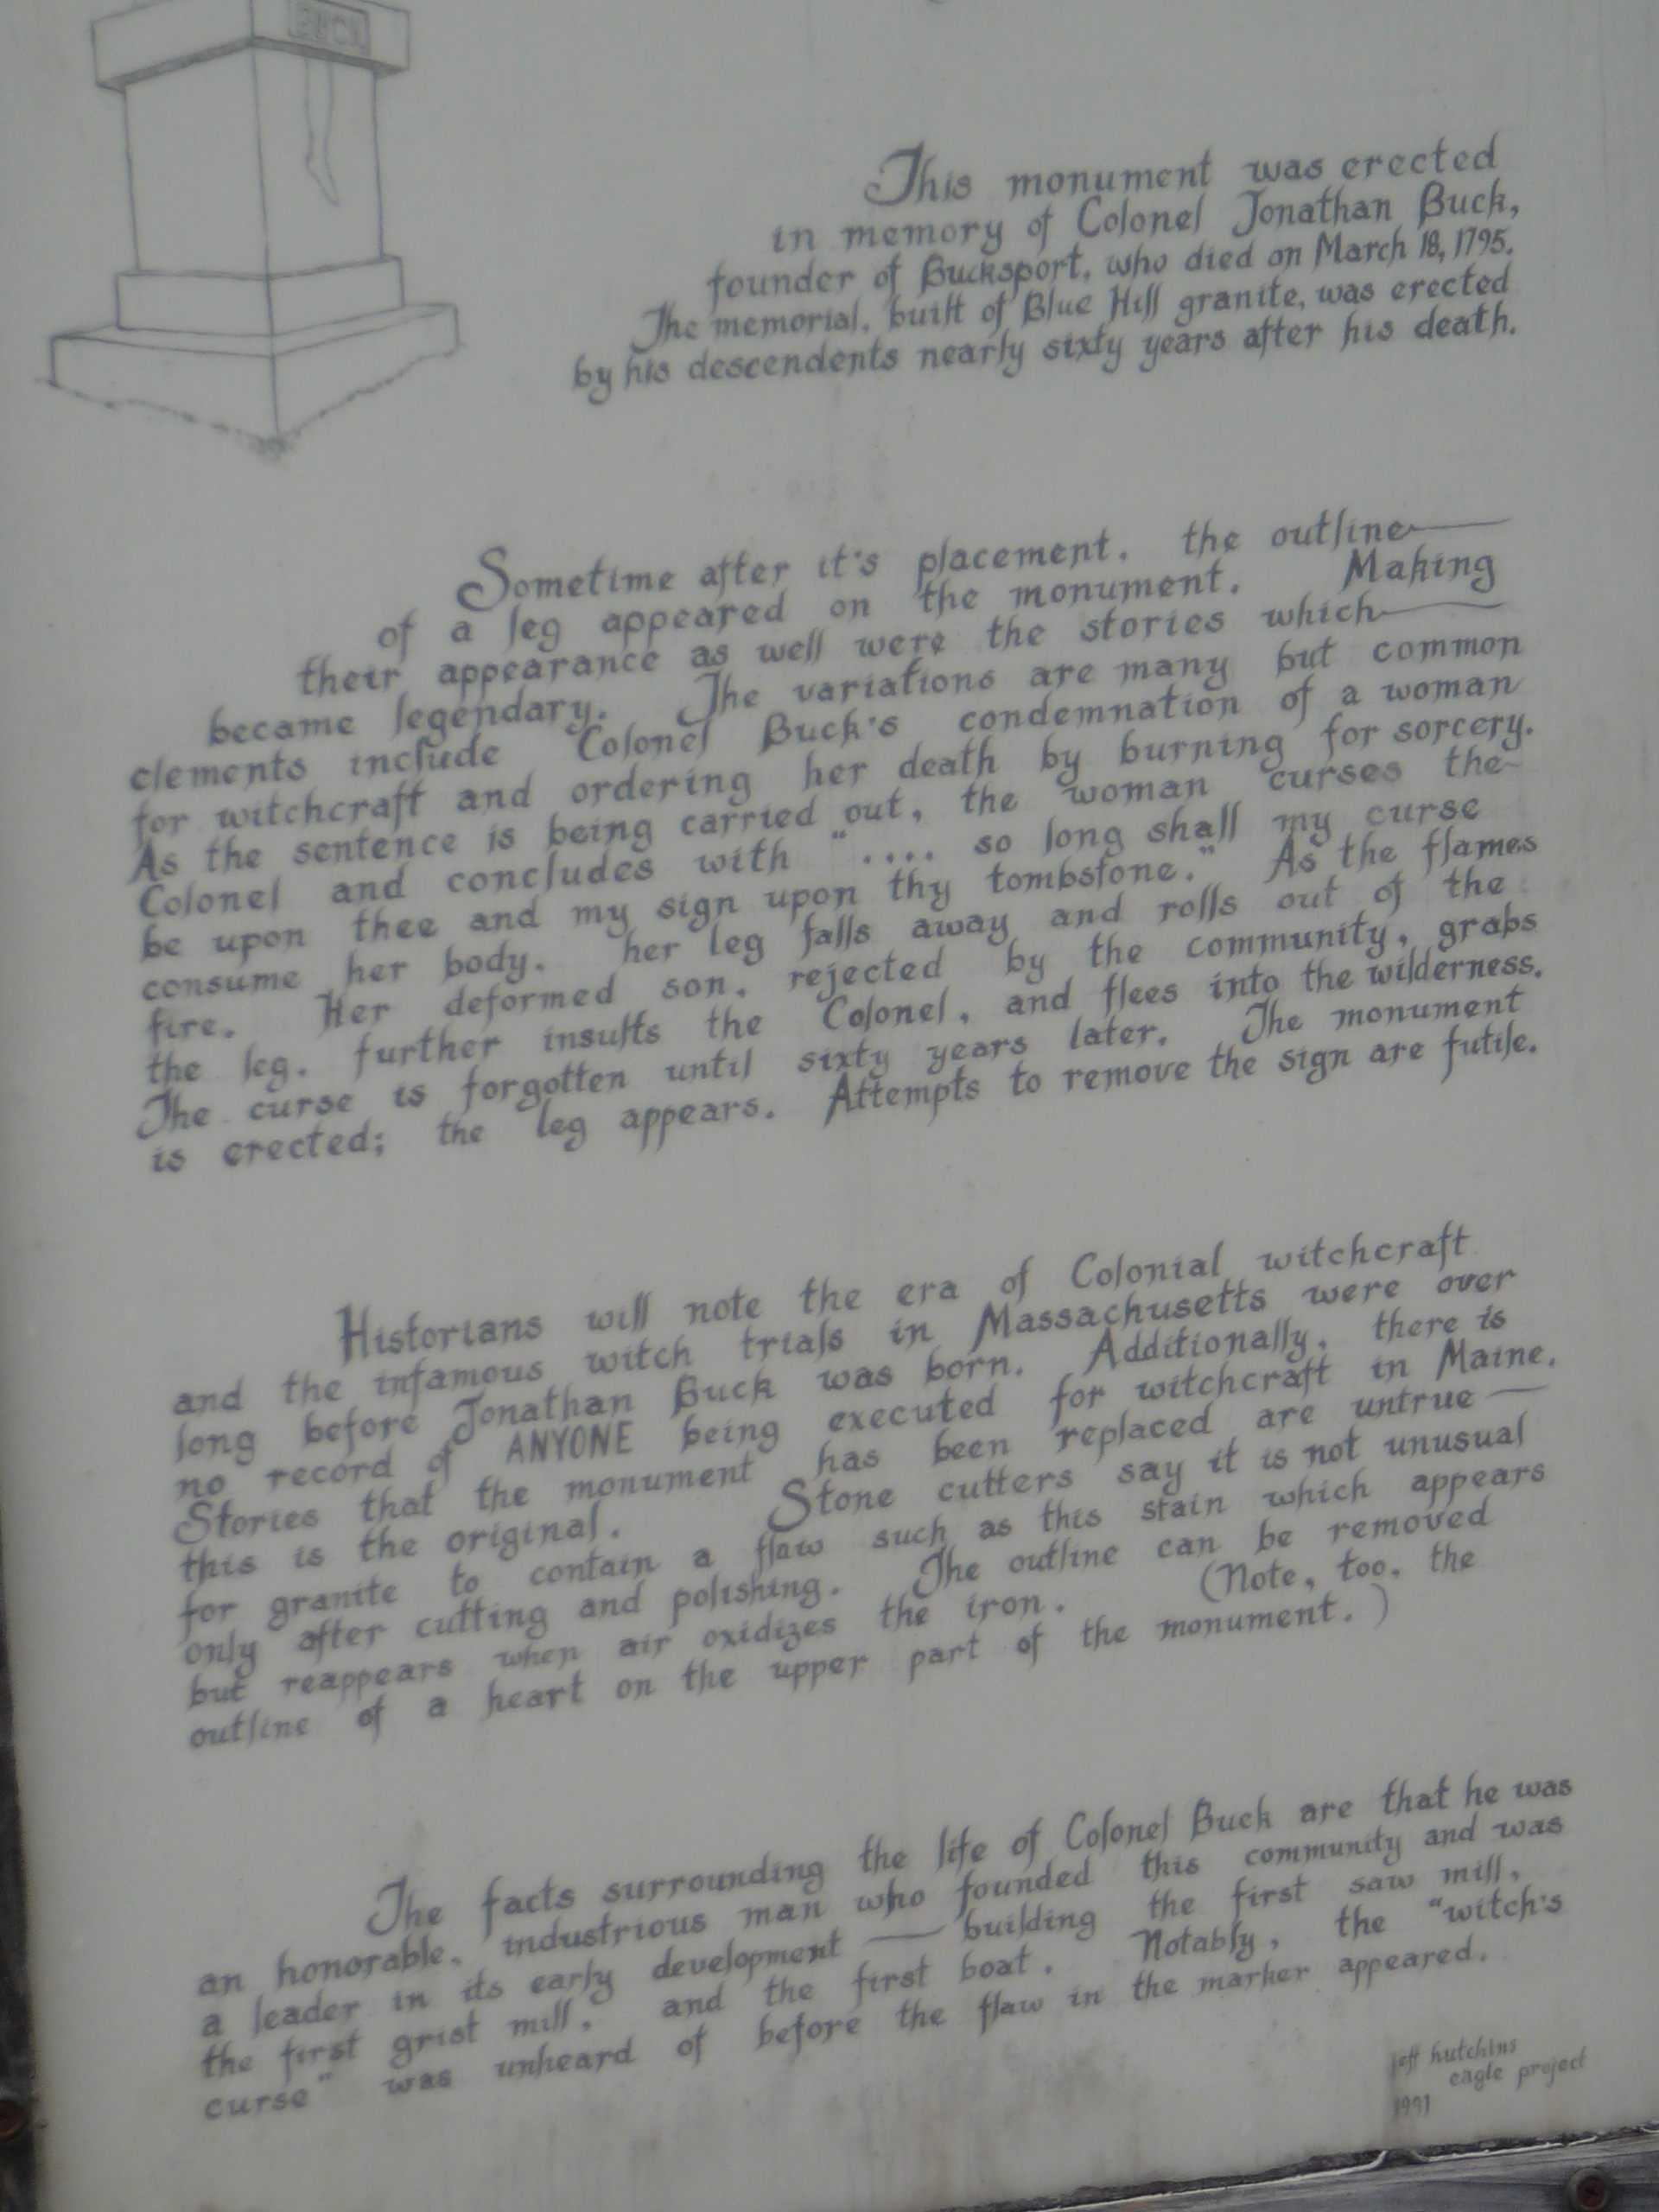 BUCK
This monument was erected
in memory of Colonel Jonathan Buck,
founder of Bucksport, who died on March 18, 1795.
The memorial, built of Blue Hill granite, was erected
by his descendents nearly sixty years after his death.
Sometime after it's placement, the outline
of a leg appeared on the monument. Making
their appearance as well were the stories which
became legendary. The variations are many but common
elements include Colonel Buck's condemnation of a woman
for witchcraft and ordering her death by burning for sorcery.
As the sentence is being carried out, the woman curses the
Colonel and concludes with ".... so long shall my curse
be upon thee and my sign upon thy tombstone." As the flames
consume her body, her leg falls away and rolls out of the
fire. Her deformed son, rejected by the community, grabs
the leg, further insults the Colonel, and flees into the wilderness.
The curse is forgotten until sixty years later. The monument
is erected; the leg appears. Attempts to remove the sign are futile.
Historians will note the era of Colonial witchcraft
and the infamous witch trials in Massachusetts were over
long before Jonathan Buck was born. Additionally, there is
no record of ANYONE being executed for witchcraft in Maine.
Stories that the monument has been replaced are untrue —
this is the original. Stone cutters say it is not unusual
for granite to contain a flaw such as this stain which appears
only after cutting and polishing. The outline can be removed
but reappears when air oxidizes the iron. (Note, too, the
outline of a heart on the upper part of the monument.)
The facts surrounding the life of Colonel Buck are that he was
an honorable, industrious man who founded this community and was
a leader in its early development — building the first saw mill,
the first grist mill, and the first boat. Notably, the "witch's
curse" was unheard of before the flaw in the marker appeared.
jeff hutchins
eagle project
1991